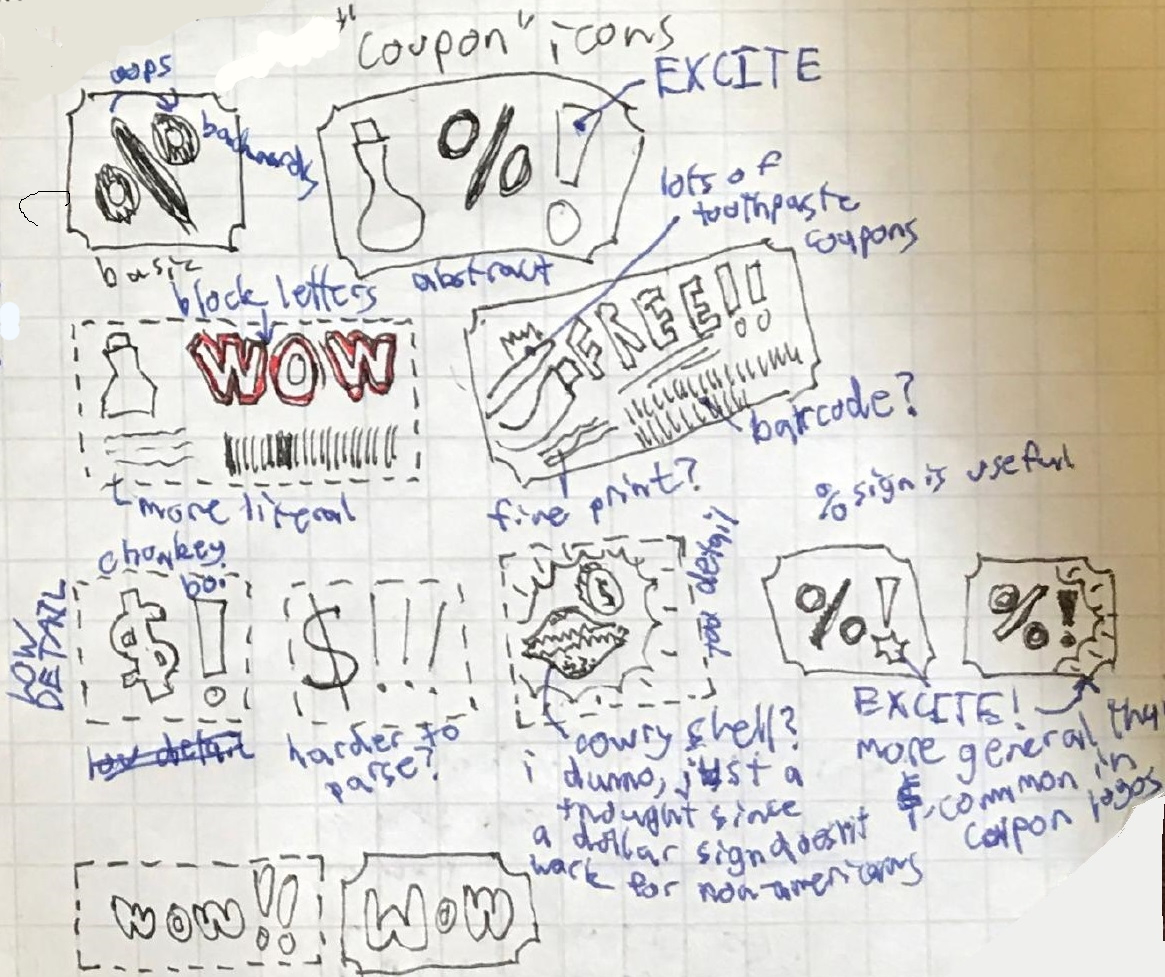 "coupon" icons
oops
backwards
%
% !
EXCITE
basic
abstract
lots of
toothpaste
coupons
block letters
WOW
FREE!!
barcode?
more literal
fine print?
% sign is useful
chonkey
boi
LOW
DETAIL
$!
$!!
$
too detail
%!
%!
low detail
harder to
parse?
cowry shell?
i dunno, just a
thought since
a dollar sign doesn't
work for non-americans
EXCITE!
more general than
$, common in
coupon logos
WOW!!
WOW